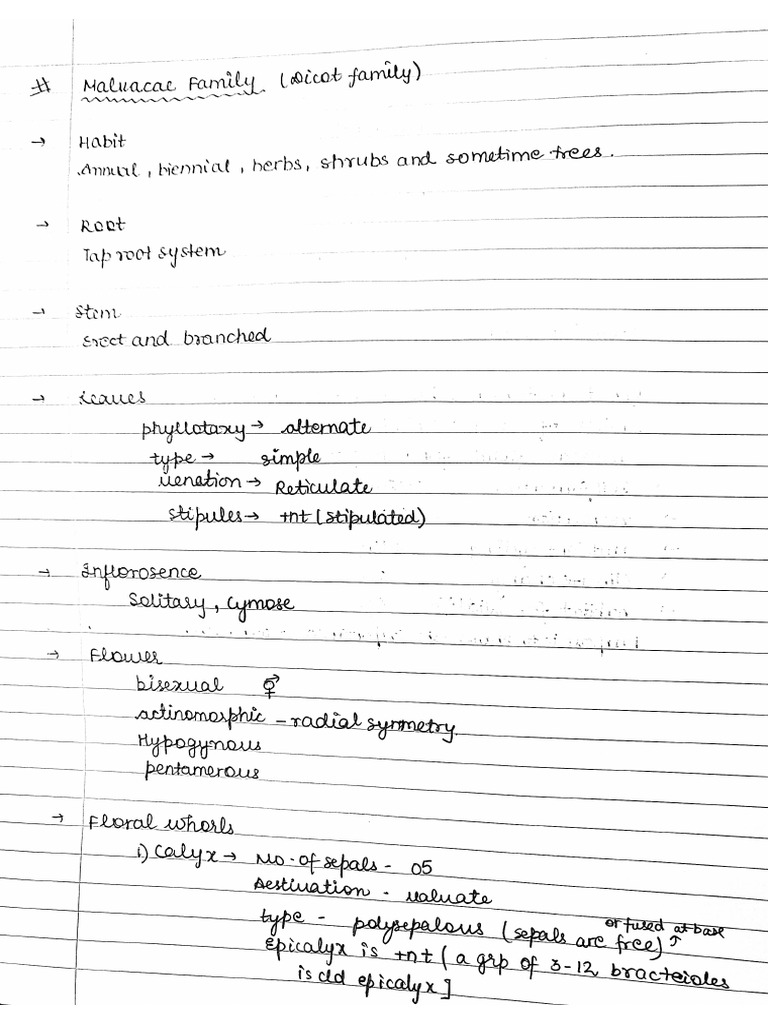 # Malvacae Family (Dicot family)
→ Habit
Annual, biennial, herbs, shrubs and sometime trees.
→ Root
Tap root system
→ Stem
Erect and branched
→ Leaves
phyllotaxy → alternate
type → simple
venation → Reticulate
stipules → +nt (stipulated)
→ Inflorosence
Solitary, Cymose
→ Flower
bisexual ⚥
actinomorphic - radial symmetry
Hypogynous
pentamerous
→ Floral whorls
i) Calyx → No. of sepals - 05
Aestivation - valvate
or fused at base
type - polysepalous (sepals are free) ↑
Epicalyx is +nt ( a grp of 3-12 bracteioles
is cld epicalyx]